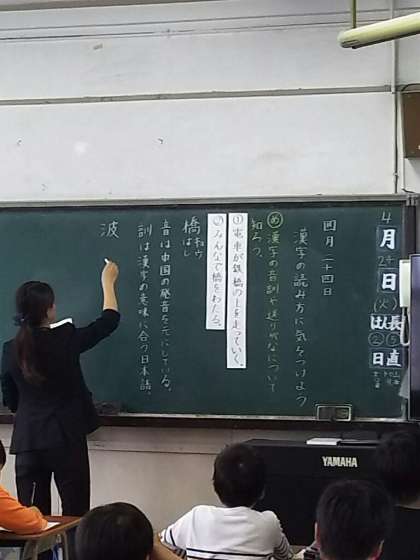 4月24日(火)
日直
四月二十四日
漢字の読み方に気をつけよう
め 漢字の音訓や送りがなについて
知ろう。
① 電車が鉄橋の上を走っていく。
② みんなで橋をわたる。
橋 キョウ
はし
音は中国の発音を元にしている。
訓は漢字の意味に合う日本語。
波
YAMAHA